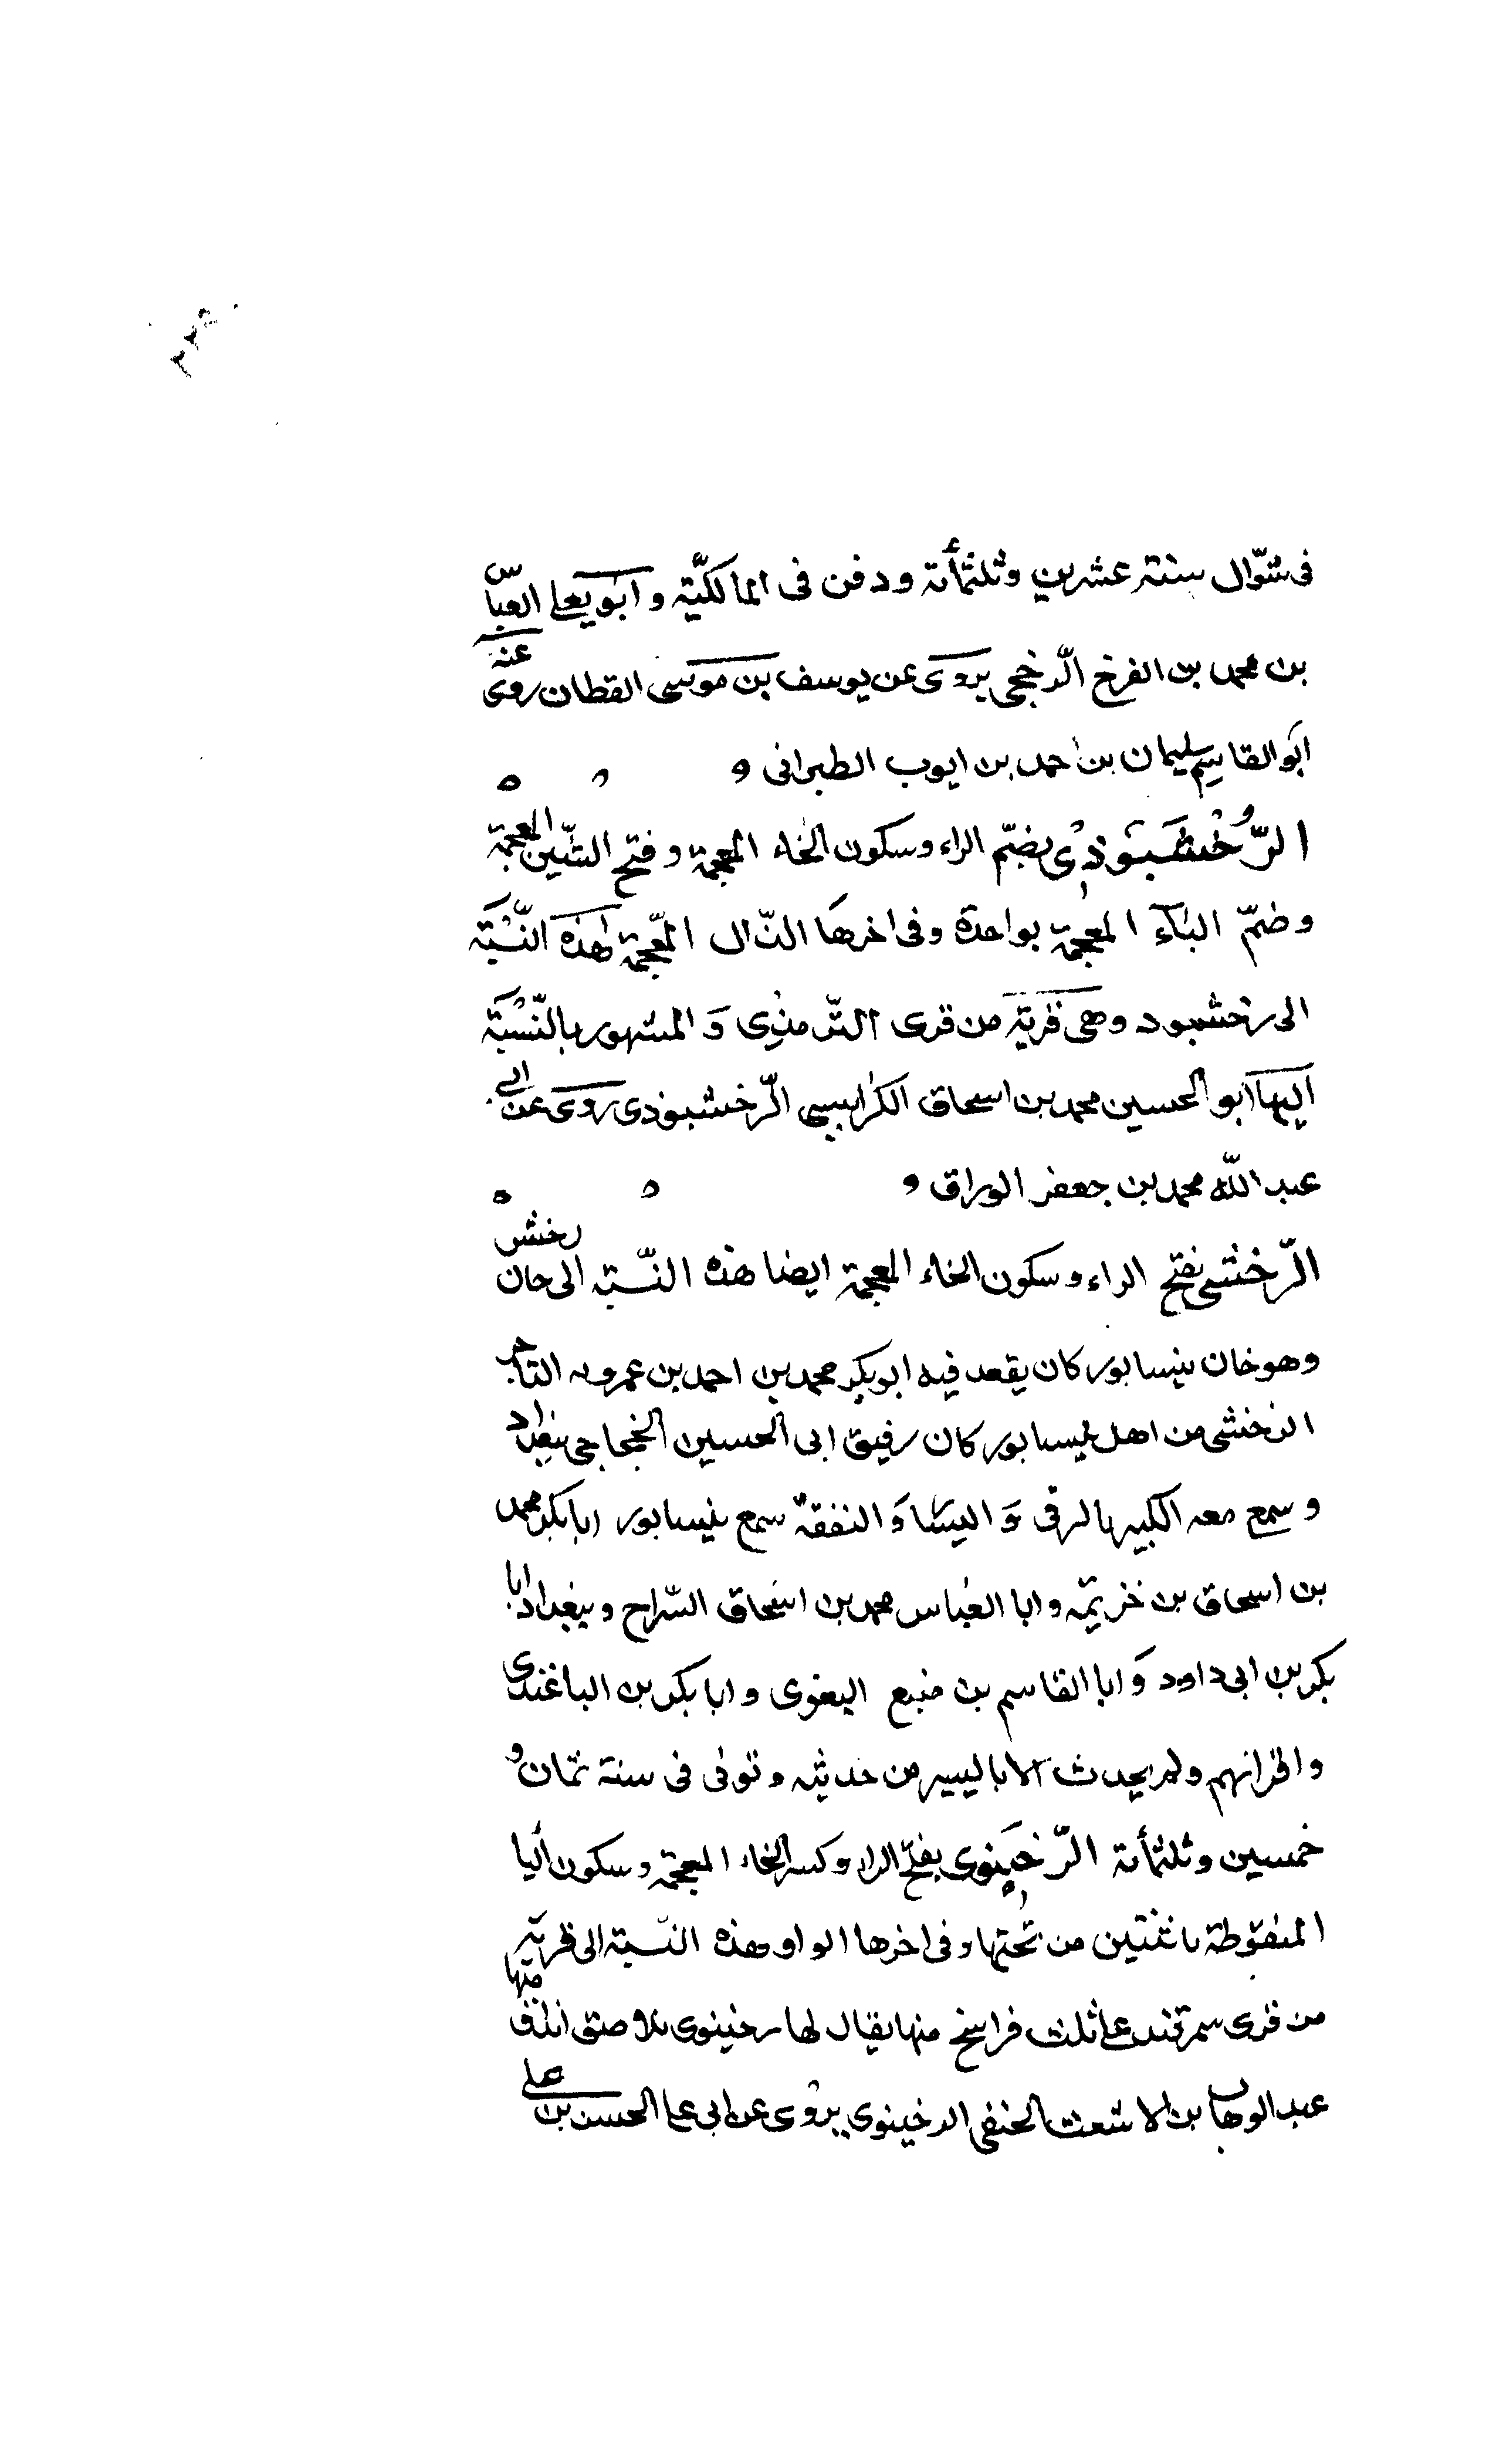 فى شوّال سنة عشرين وثلثمأئة ودفن فى المالكيّة وابو يعلى العبّاس
بن محمد بن الفرخ الرّخجى يروى عن يوسف بن موسى القطان روى عنه
ابو القاسم سليمان بن احمد بن ايوب الطبرانى ه
الرُّخْشَبُوذِى بضمّ الراء وسكون الخاء المعجمة وفتح الشّين المعجمة
وضمّ الباء المعجمة بواحدة وفى اخرها الذّال المعجّمة هذه النّسبَة
الى رخشبود وهى قرية من قرى الترمذى وَالمشهور بالنّسْبَة
اليها ابو الحسين محمد بن اسحاق الكرابيسى الرّخشبوذى روى عن ابى
عبد اللّه محمد بن جعفر الوراق ه
الرّخشى بفتح الراء وسكون الخاء المعجمة ايضا هذه النسّبة الى خان رخش
وهو خان بنيسابور كان يقعد فيه ابو بكر محمد بن احمد بن عمرويه التاجر
الرخشى من اهل نيسابور كان رفيق ابى الحسين الحجاجى ببغداد
وسمع معه الكبير بالرقى وَ وَالنفقة سمع بنيسابور ابا بكر محمد
بن اسحاق بن خزيمة وابا العباس محمد بن اسحاق السّراج وببغداد ابا
بكر بن ابى داود وَابا القاسم بن منيع البغوى وابا بكر بن الباغندى
واقرانهم ولم يحدث الا باليسير من حديثه وتوفى فى سنة ثمان و
خمسين وثلثمأئة الرّخِينوى بفتح الراء وكسر الخاء المعجمة وسكون اليا
المنقوطة باثنتين من تحتها وفى اخرها الواو هذه النسبة الى قرية
من قرى سمرقند على ثلث فراسخ منها يقال لها رخينوى منها
عبد الوهاب بن الاشعث الحنفى الرخينوى يروى عن ابى على الحسن بن على